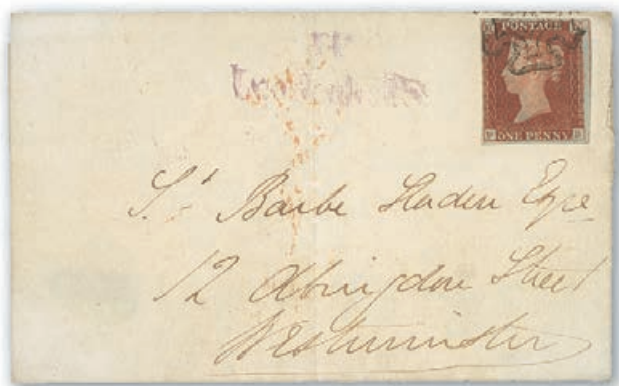 POSTAGE
ONE PENNY
St Barbe Sladen Esqre
12 Abingdon Street
Westminster